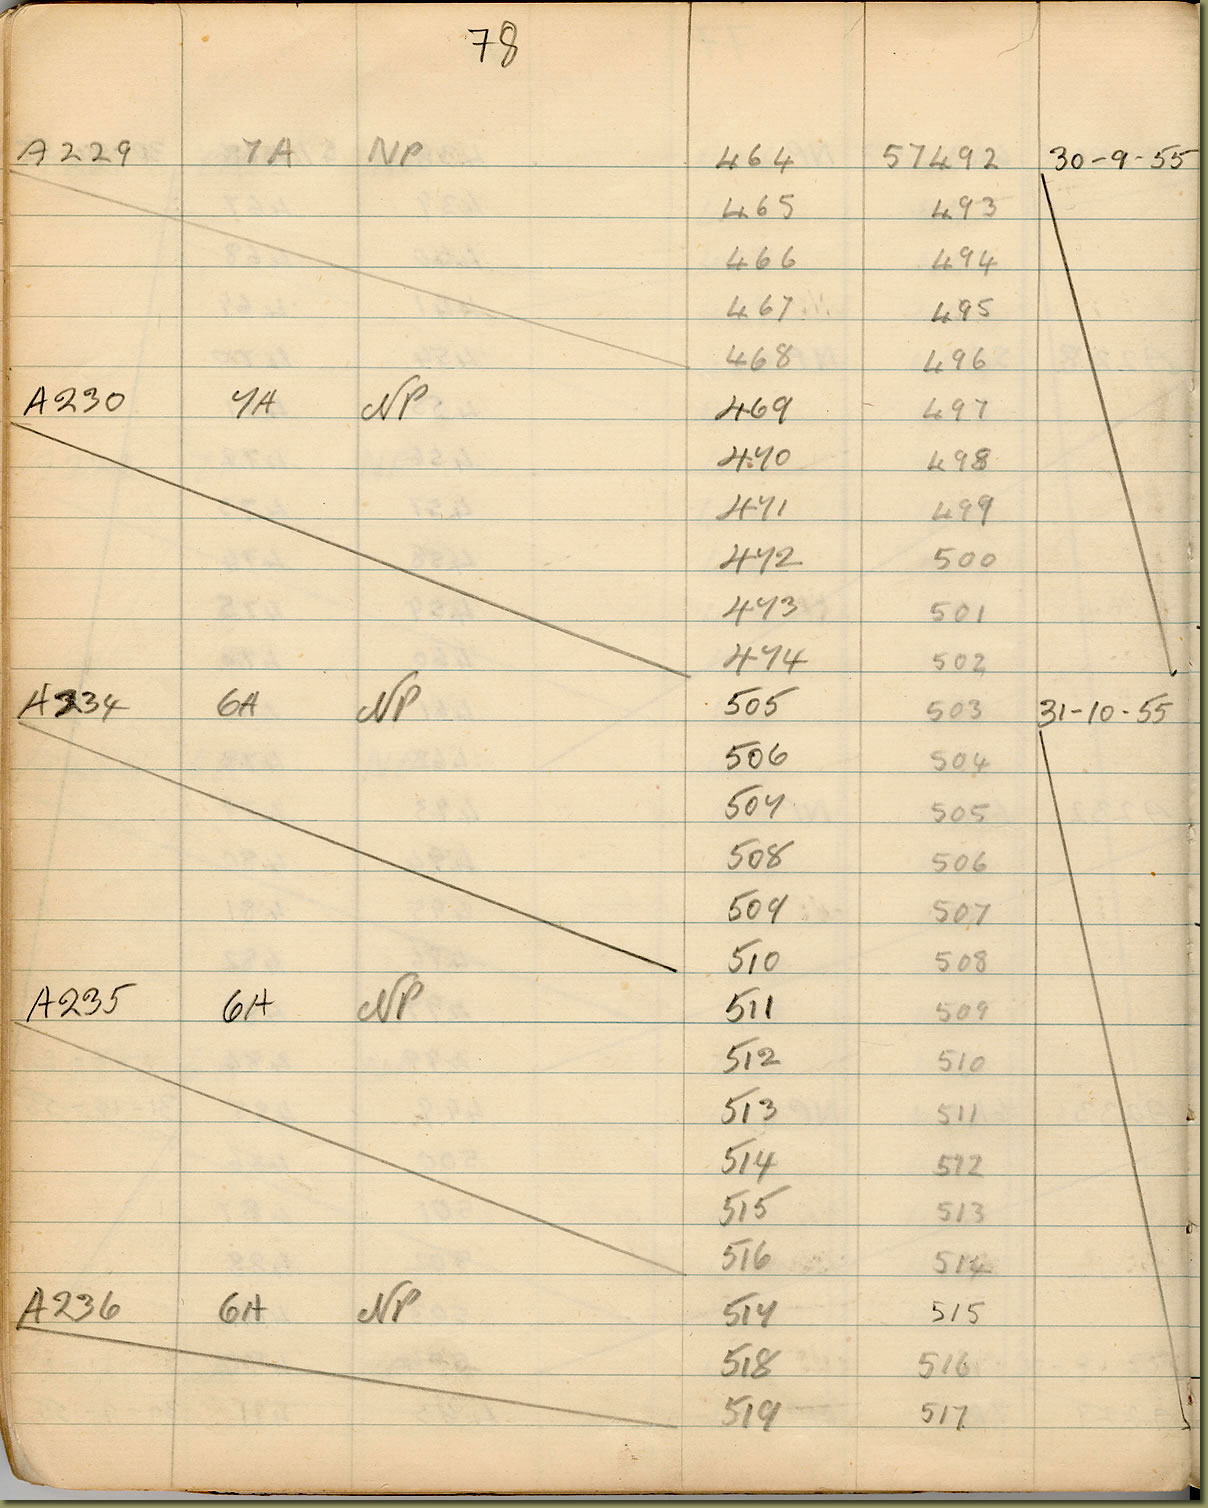 78
A229 7A NP 464 57492 30-9-55
465 493
466 494
467 495
468 496
A230 7A NP 469 497
470 498
471 499
472 500
473 501
474 502
A234 6A NP 505 503 31-10-55
506 504
507 505
508 506
509 507
510 508
A235 6A NP 511 509
512 510
513 511
514 512
515 513
516 514
A236 6A NP 517 515
518 516
519 517